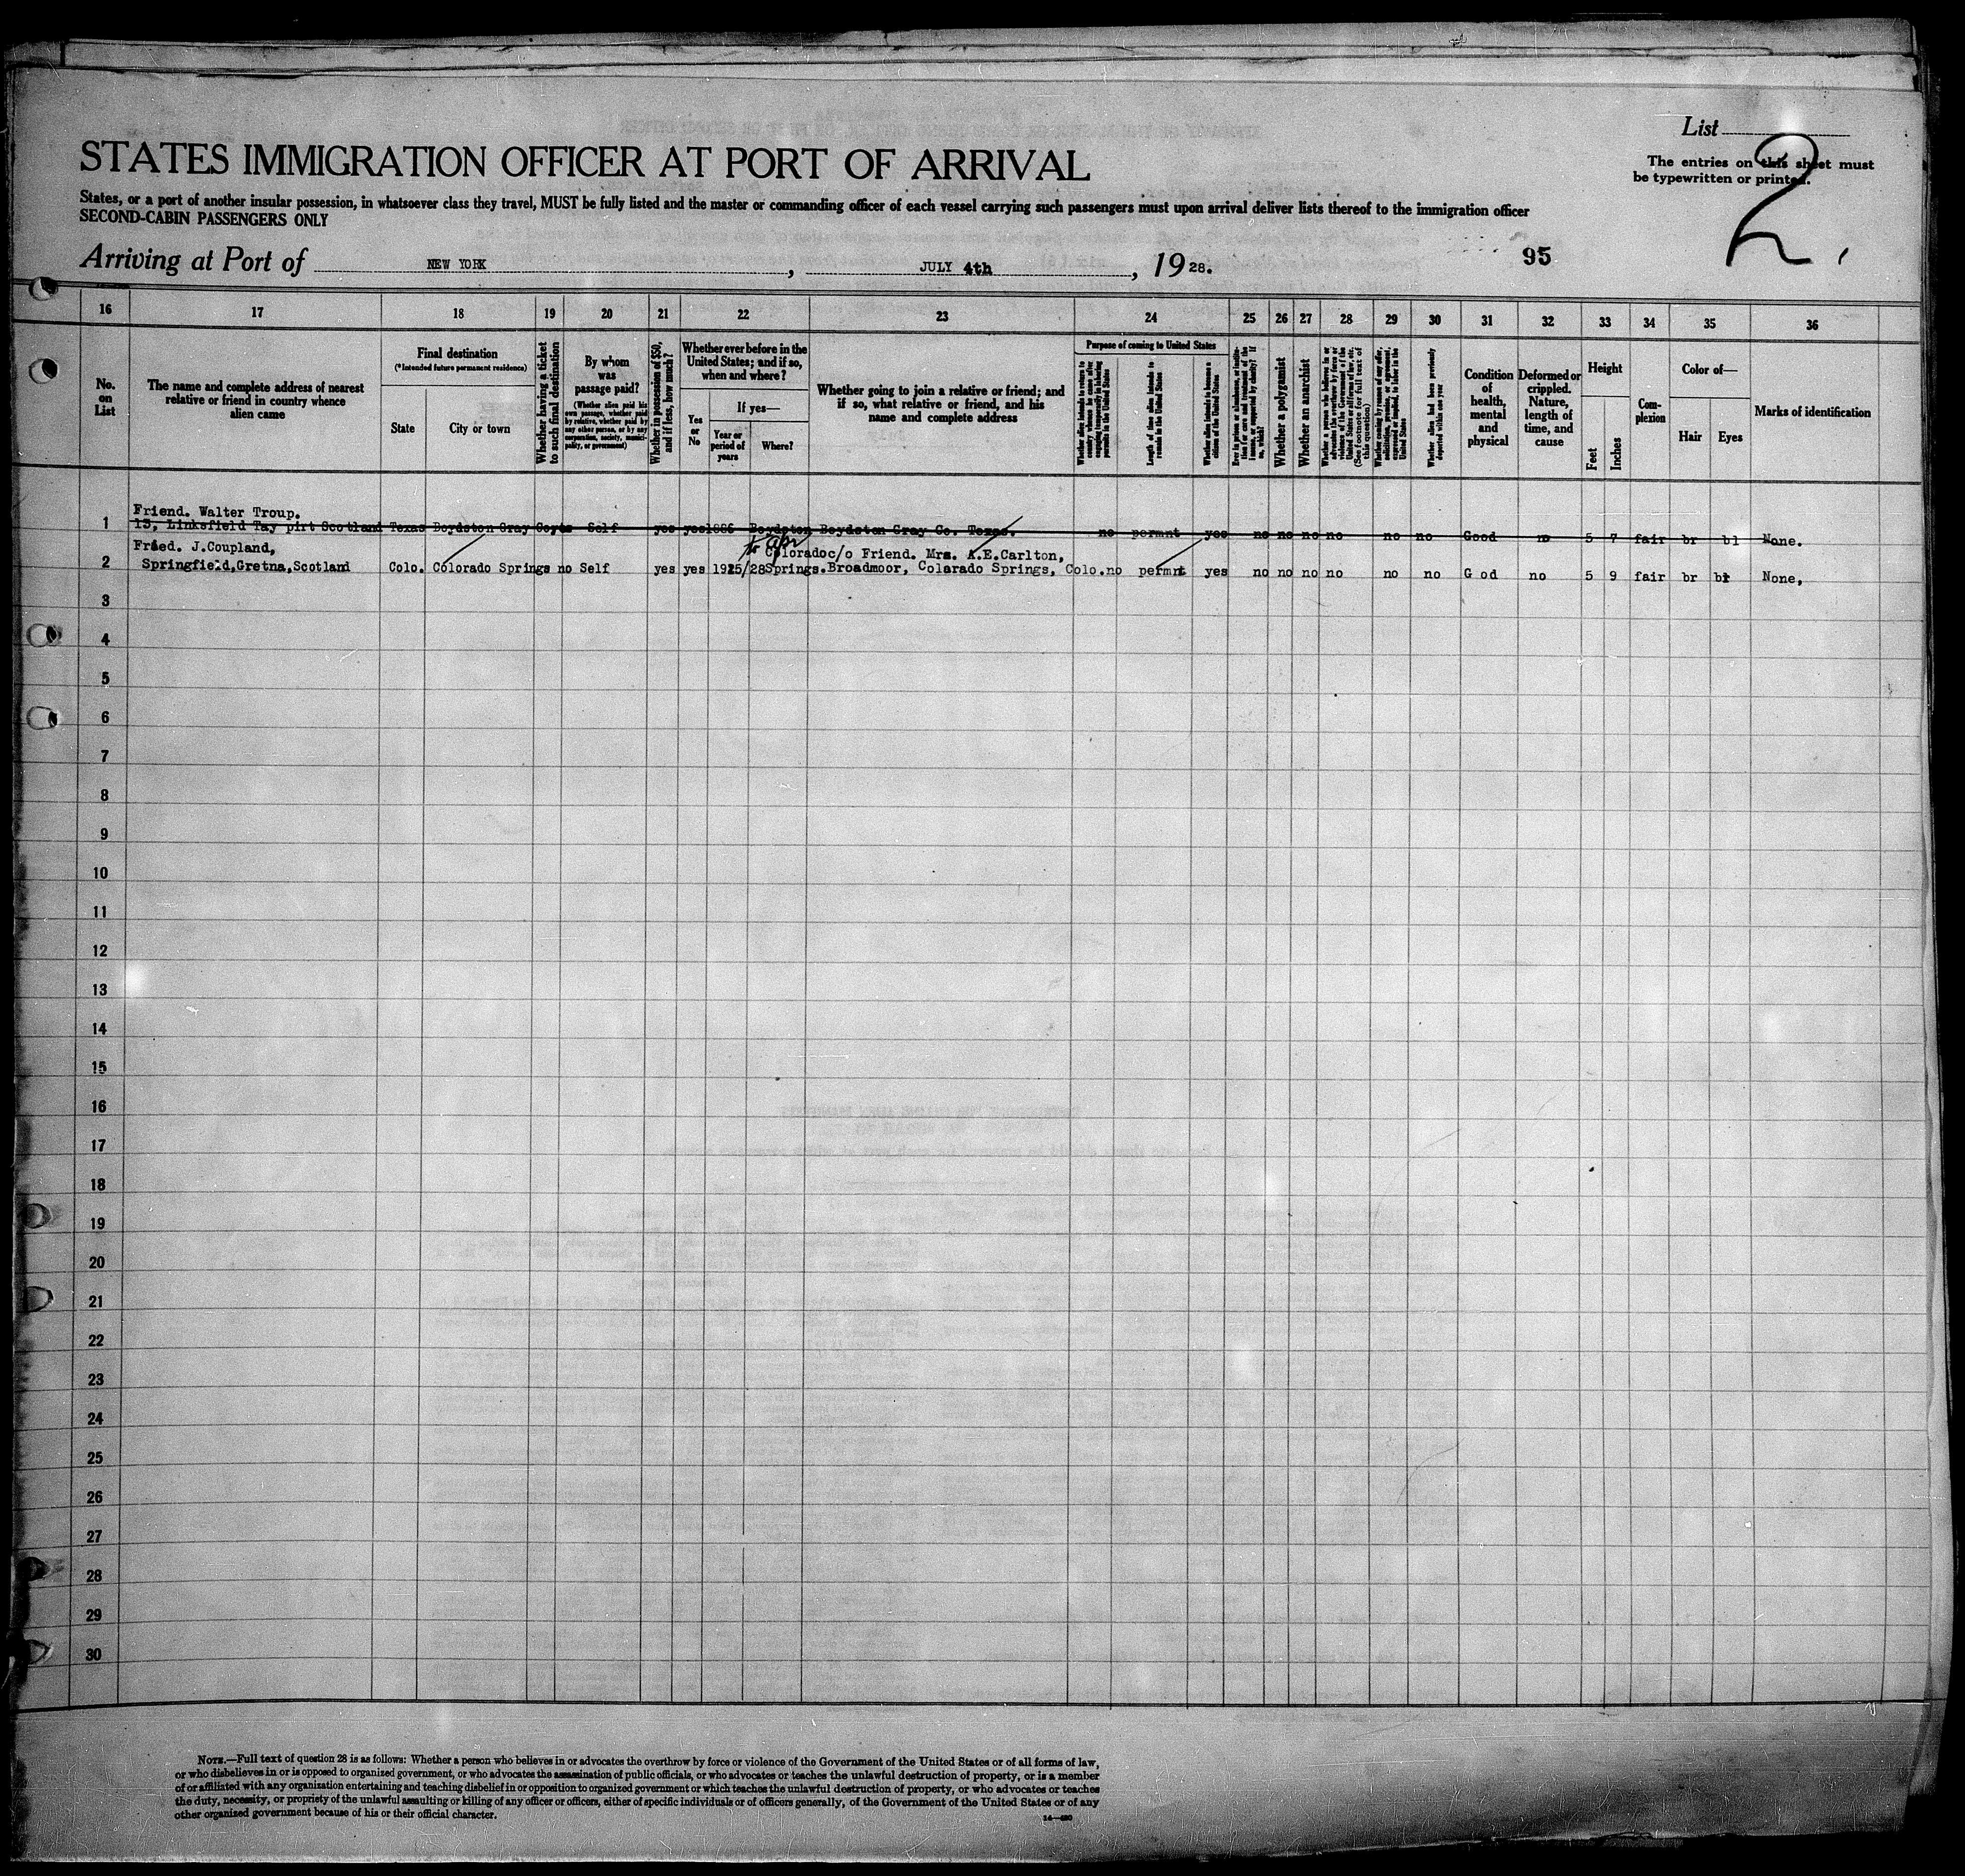 List
2.
The entries on this sheet must
be typewritten or printed.
STATES IMMIGRATION OFFICER AT PORT OF ARRIVAL
States, or a port of another insular possession, in whatsoever class they travel, MUST be fully listed and the master or commanding officer of each vessel carrying such passengers must upon arrival deliver lists thereof to the immigration officer
SECOND-CABIN PASSENGERS ONLY
Arriving at Port of NEW YORK, JULY 4th, 19 28.
95
16 17 18 19 20 21 22 23 24 25 26 27 28 29 30 31 32 33 34 35 36
No. on List
The name and complete address of nearest
relative or friend in country whence
alien came
Final destination
(*Intended future permanent residence)
State
City or town
Whether having a ticket
to such final destination
By whom
was
passage paid?
(Whether alien paid his
own passage, whether paid
by relative, whether paid by
any other person, or by any
corporation, society, munici-
pality, or government)
Whether in possession of $50,
and if less, how much?
Whether ever before in the
United States; and if so,
when and where?
Yes
or
No
If yes—
Year or
period of
years
Where?
Whether going to join a relative or friend; and
if so, what relative or friend, and his
name and complete address
Purpose of coming to United States
Whether alien intends to return to
country whence he came after
engaging temporarily in laboring
pursuits in the United States
Length of time alien intends to
remain in the United States
Whether alien intends to become a
citizen of the United States
Whether a polygamist
Whether an anarchist
(See footnote for full text of
this question)
Whether alien had been previously
deported within one year
Condition
of
health,
mental
and
physical
Deformed or
crippled.
Nature,
length of
time, and
cause
Height
Feet
Inches
Com-
plexion
Color of—
Hair
Eyes
Marks of identification
Friend. Walter Troup.
1 15, Linksfield Tay pirt Scotland Texas Boydston Gray Co Self yes yes 1886 Boydston Boydston Gray Co. Texas. no permnt yes no no no no no no Good no 5 7 fair br bl None.
to Apr
Fried. J.Coupland, Colorado c/o Friend. Mrs. A.E.Carlton,
2 Springfield,Gretna,Scotland Colo. Colorado Springs no Self yes yes 1925/28 Springs. Broadmoor, Colarado Springs, Colo. no permnt yes no no no no no no G od no 5 9 fair br br None,
3
4
5
6
7
8
9
10
11
12
13
14
15
16
17
18
19
20
21
22
23
24
25
26
27
28
29
30
NOTE.—Full text of question 28 is as follows: Whether a person who believes in or advocates the overthrow by force or violence of the Government of the United States or of all forms of law,
or who disbelieves in or is opposed to organized government, or who advocates the assassination of public officials, or who advocates or teaches the unlawful destruction of property, or is a member
of or affiliated with any organization entertaining and teaching disbelief in or opposition to organized government or which teaches the unlawful destruction of property, or who advocates or teaches
the duty, necessity, or propriety of the unlawful assaulting or killing of any officer or officers, either of specific individuals or of officers generally, of the Government of the United States or of any
other organized government because of his or their official character.